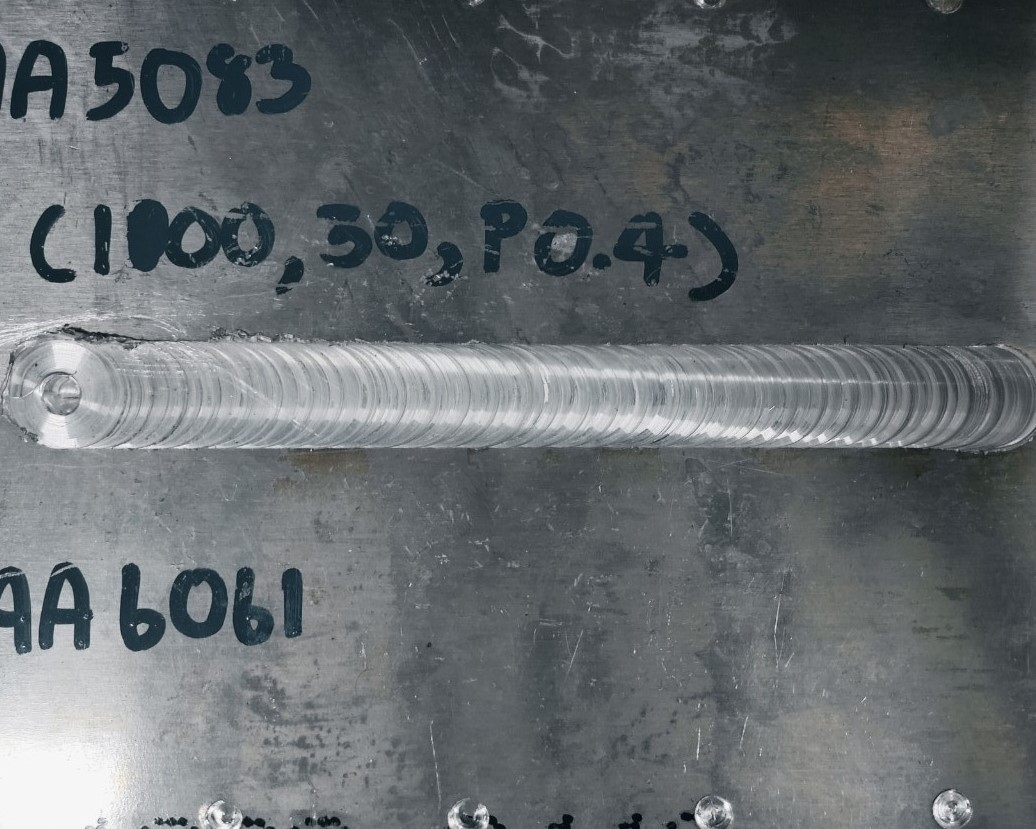 AA5083
(1000, 50, P0.4)
AA6061